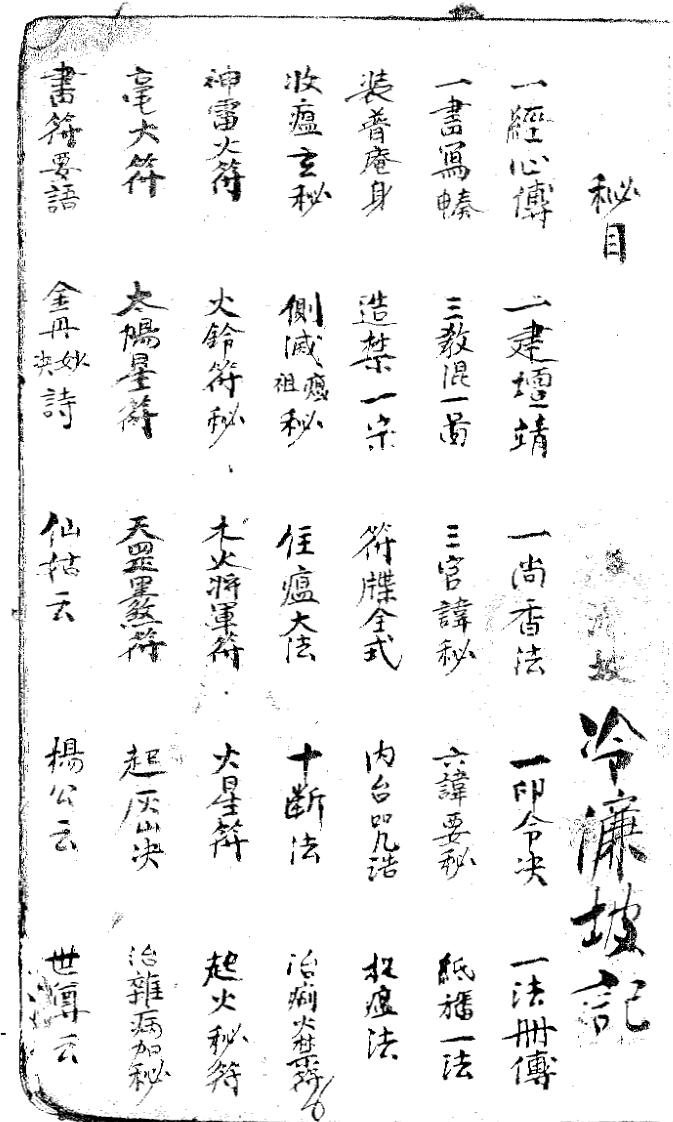 秘目
冷濂坡記
一經心傳 一建壇靖 一尚香法 一印令决 一法冊傳
一書寫 三教混一啚 三官諱秘 六諱要秘 紙旛一法
装普庵身 造禁一宗 符牒全式 内台咒誥 瘟法
妆瘟玄秘 側滅祖秘 住瘟大法 十断法 治痢火禁符
神雷火符 火鈴符秘 木火将軍符 火星符 起火秘符
亳火符 太陽星符 天罡黑煞符 起灰山决 治雜病加秘
書符要語 金丹妙决詩 仙姑云 楊公云 世尊云